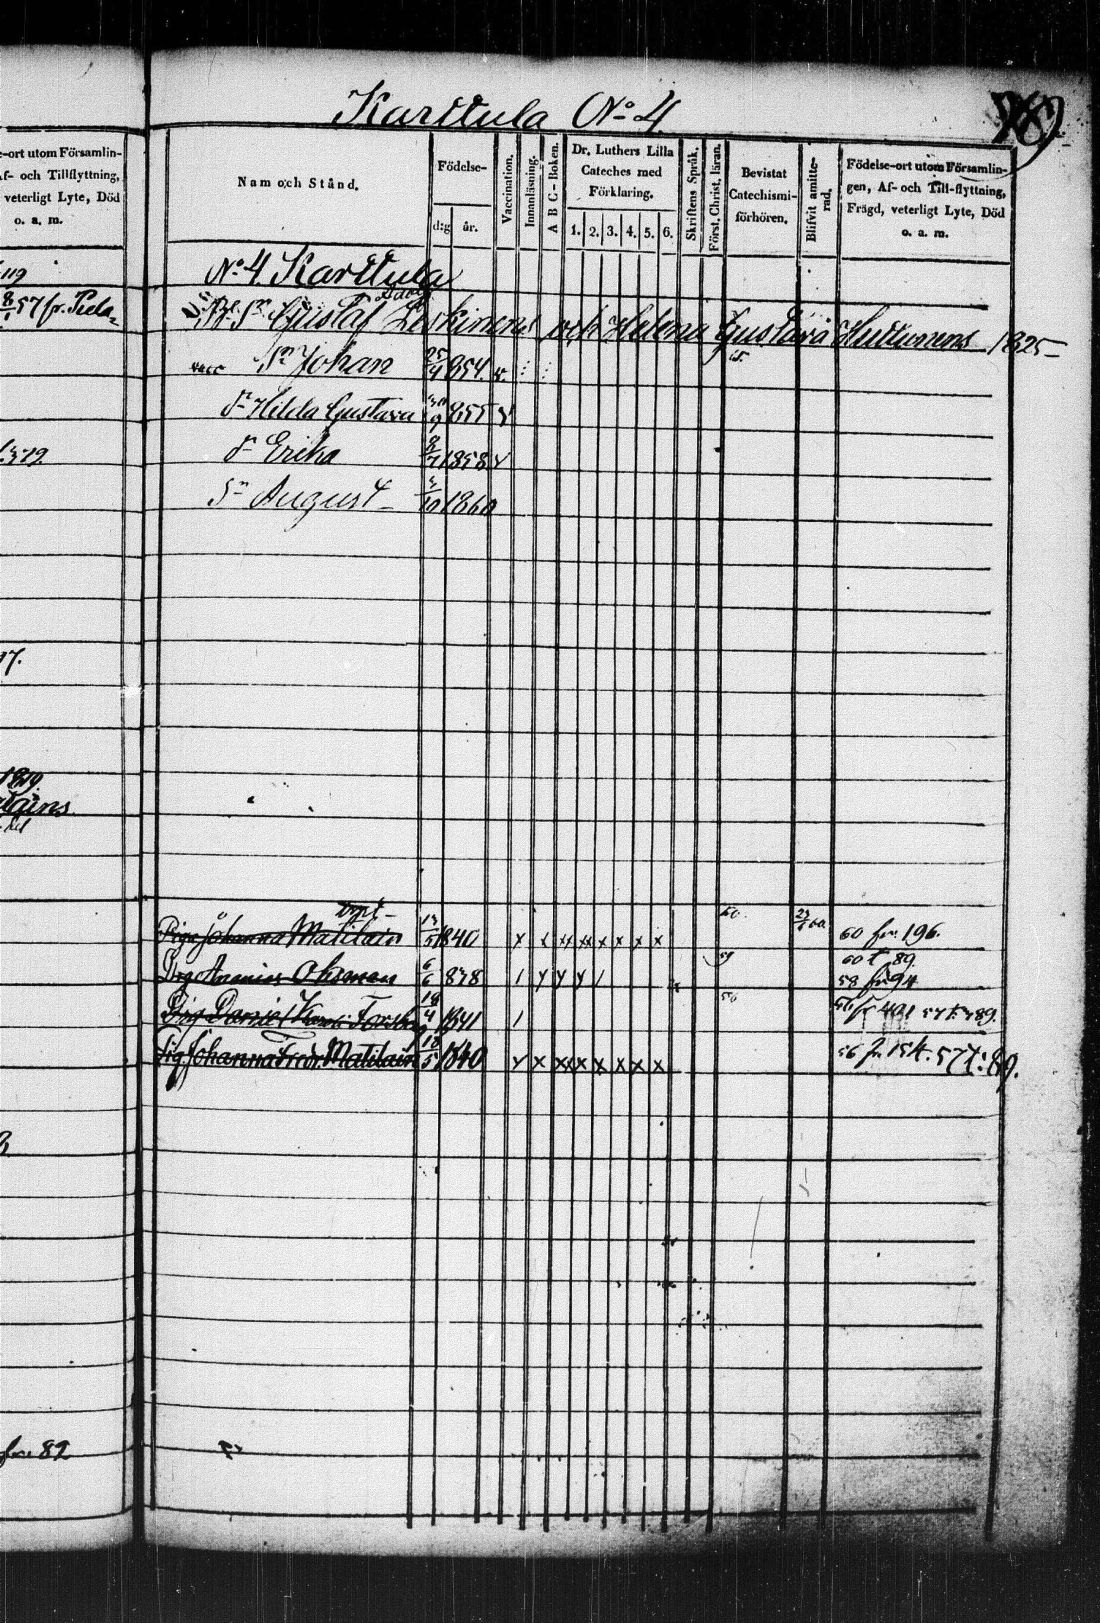 Karttula No 4
e-ort utom Församlin-
Af- och Tillflyttning,
veterligt Lyte, Död
o. a. m.
Namn och Stånd.
Födelse-
d:g år.
Vaccination.
Innanläsning.
A B C - Boken.
Dr. Luthers Lilla
Cateches med
Förklaring.
1. 2. 3. 4. 5. 6.
Skriftens Språk.
Först. Christ. läran.
Bevistat
Catechismi-
förhören.
Blifvit amitte-
rad.
Födelse-ort utom Församlin-
gen, Af- och Till-flyttning,
Frägd, veterligt Lyte, Död
o. a. m.
119
No 4 Karttula
8 57 fr. Piela-
Adolf
Gustaf Leskinens och Helena Gustava Huttunens 1825
Sn Johan 25/9 854. v.
dr Hilda Gustava 30/9 855 v
579.
dr Erika 8/7 1858 v
Sn August 5/10 1860
17.
1819
Piga Johanna Matilain 13/5 1840 x x x x x x x x 60 23/6 60 60 fr 196.
60 t 89
Drg Ananias Ohoman 6/6 838 59 58 fr 94
Drg Daniel Forsberg 19/4 1841 56 56 fr 401 57 t: 789.
Pig. Johanna Fredr. Matilain 13/5 1840 x x x x x x x x 56 fr 154. 57 t: 89.
fr. 82